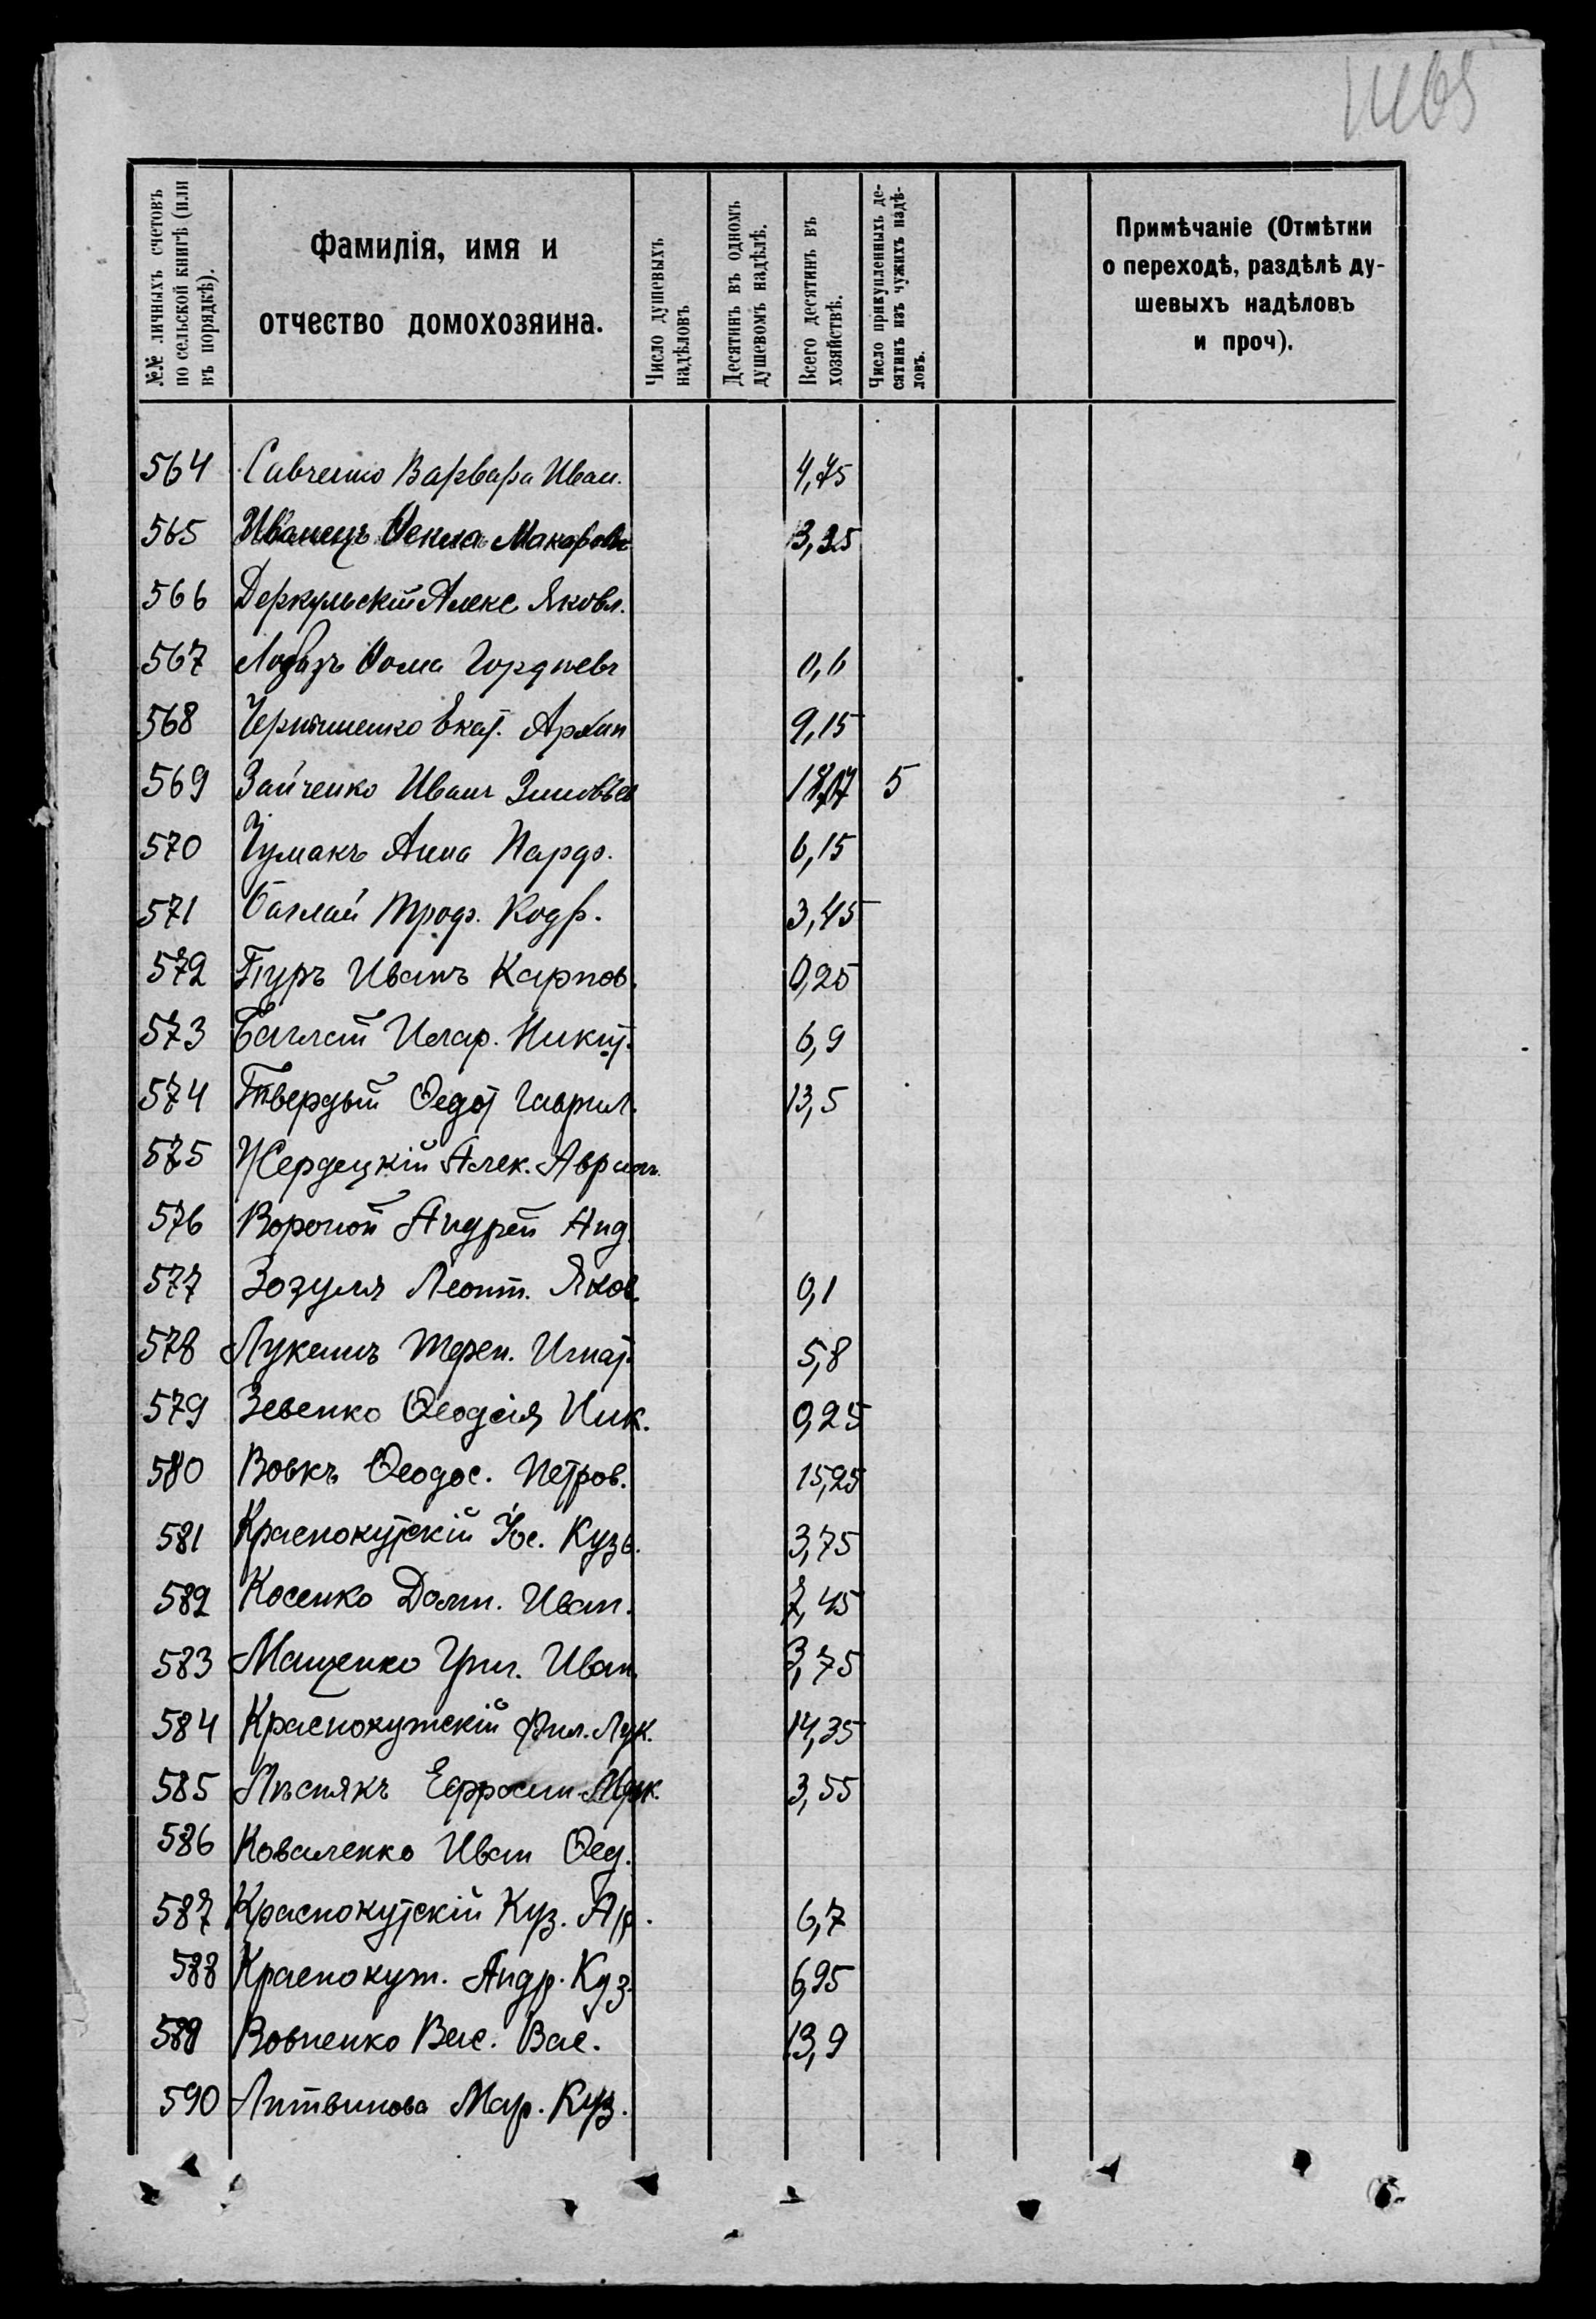 №№ личныхъ счетовъ
по сельской книгѣ (или
въ порядкѣ).
Фамилія, имя и
отчество домохозяина.
Число душевыхъ
надѣловъ
Десятинъ въ одномъ
душевомъ надѣлѣ.
Всего десятинъ въ
хозяйствѣ.
Число прикупленныхъ де-
сятинъ изъ чужихъ надѣ-
ловъ.
Примѣчаніе (Отмѣтки
о переходѣ, раздѣлѣ ду-
шевыхъ надѣловъ
и проч).
564 Савченко Варвара Иван. 4,45
565 Иванецъ Ѳекла Макаров 3,35
566 Деркульскій Алекс Яковл.
567 Ѳома Гордѣевъ 0,6
568 Чернышенко Екат. Архип 9,15
569 Зайченко Иванъ Зиновьев 5
570 Чумакъ Анна Парф. 6,15
571 Баглай Троф. Кодр. 3,45
572 Туръ Иванъ Карпов. 0,25
573 Баглай Илар. Никит. 6,9
574 Твердый Ѳедот Гаврил. 13,5
575 Жердецкій Алек. Аврам.
576 Вороной Андрей Анд.
577 Зозуля Леонт. Яков 0,1
578 Лукашъ Терен. Игнат. 5,8
579 Зевенко Ѳеодсія Ник. 0,25
580 Вовкъ Ѳеодос. Петров. 15,25
581 Краснокутскій Іос. Кузь. 3,75
582 Косенко Долм. Иван. 7,45
583 Мащенко Григ. Иван. 3,75
584 Краснокутскій Фил. Лук. 14,35
585 Пѣснякъ Ефросин. 3,55
586 Коваленко Иван Ѳед.
587 Краснокутскій Куз. Ар. 6,7
588 Краснокут. Андр. Куз. 6,95
589 Вовненко Вас. Вас. 13,9
590 Литвинова Мар. Куз.